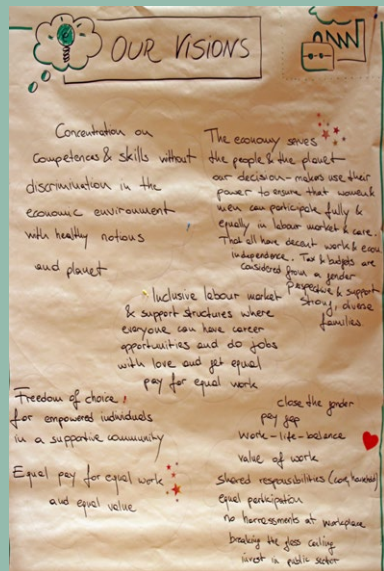 OUR VISIONS
Concentration on
competences & skills without
discrimination in the
economic environment
with healthy notions
and planet
The economy serves
the people & the planet
our decision-makers use their
power to ensure that women &
men can participate fully &
equally in labour market & care.
That all have decent work & econ.
independence. Tax & budgets are
considered from a gender
perspective & support
strong, diverse
families
Inclusive labour market
& support structures where
everyone can have career
opportunities and do jobs
with love and get equal
pay for equal work
Freedom of choice
for empowered individuals
in a supportive community
Equal pay for equal work
and equal value
close the gender
pay gap
work-life-balance
value of work
shared responsibilities (care,
equal participation
no harressments at workplace
breaking the glass ceiling
invest in public sector